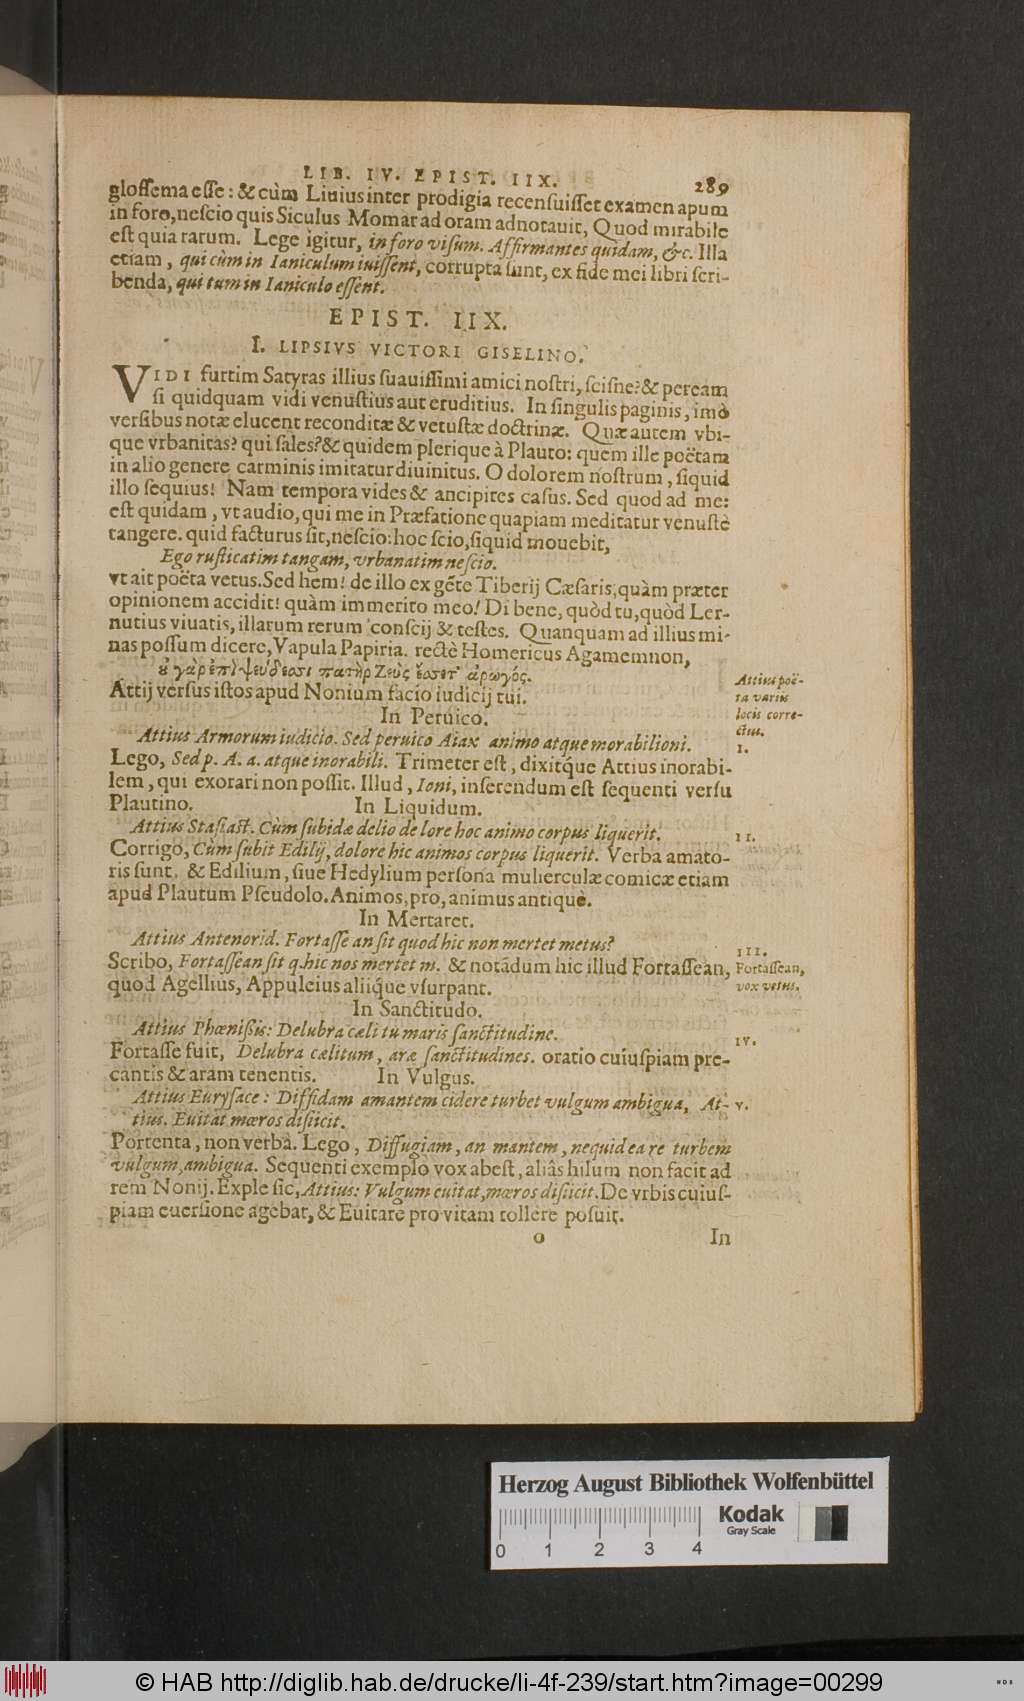 LIB. IV. EPIST. IIX. 289
glossema esse: & cùm Liuius inter prodigia recensuisset examen apum
in foro, nescio quis Siculus Momar ad oram adnotauit, Quod mirabile
est quia rarum. Lege igitur, in foro visum. Affirmantes quidam, &c. Illa
etiam, qui cùm in Ianiculum iuissent, corrupta sunt, ex fide mei libri scri-
benda, qui tum in Ianiculo essent.
EPIST. IIX.
I. LIPSIVS VICTORI GISELINO.
VIDI furtim Satyras illius suauissimi amici nostri, scisne? & peream
si quidquam vidi venustius aut eruditius. In singulis paginis, imò
versibus notæ elucent reconditæ & vetustæ doctrinæ. Quæ autem vbi-
que vrbanitas? qui sales? & quidem plerique à Plauto: quem ille poëtam
in alio genere carminis imitatur diuinitus. O dolorem nostrum, siquid
illo sequius! Nam tempora vides & ancipites casus. Sed quod ad me:
est quidam, vt audio, qui me in Præfatione quapiam meditatur venustè
tangere. quid facturus sit, nescio: hoc scio, siquid mouebit,
Ego rusticatim tangam, vrbanatim nescio.
vt ait poëta vetus. Sed hem! de illo ex gẽte Tiberij Cæsaris, quàm præter
opinionem accidit! quàm immerito meo! Di bene, quòd tu, quòd Ler-
nutius viuatis, illarum rerum conscij & testes. Quanquam ad illius mi-
nas possum dicere, Vapula Papiria. rectè Homericus Agamemnon,
ȣ γὰρ ἐπὶ ψευδέσσι πατὴρ Ζεὺς ἔσσετ' ἀρωγός.
Attij versus istos apud Nonium facio iudicij tui.
Attius poë-
ta variis
locis corre-
ctus.
In Peruico.
Attius Armorum iudicio. Sed peruico Aiax animo atque morabilioni.
I.
Lego, Sed p. A. a. atque inorabili. Trimeter est, dixitq́ue Attius inorabi-
lem, qui exorari non possit. Illud, Ioni, inserendum est sequenti versu
Plautino. In Liquidum.
Attius Stasiast. Cùm subidæ delio de lore hoc animo corpus liquerit. II.
Corrigo, Cùm subit Edilij, dolore hic animos corpus liquerit. Verba amato-
ris sunt, & Edilium, siue Hedylium persona mulierculæ comicæ etiam
apud Plautum Pseudolo. Animos, pro, animus antiquè.
In Mertaret.
Attius Antenorid. Fortasse an sit quod hic non mertet metus? III.
Scribo, Fortassean sit q. hic nos mertet m. & notãdum hic illud Fortassean, Fortassean,
quod Agellius, Appuleius aliique vsurpant. vox vetus.
In Sanctitudo.
Attius Phœnißis: Delubra cæli tu maris sanctitudine. IV.
Fortasse fuit, Delubra cælitum, aræ sanctitudines. oratio cuiuspiam pre-
cantis & aram tenentis. In Vulgus.
Attius Eurysace: Diffidam amantem cidere turbet vulgum ambigua, At- V.
tius. Euitat mœros disiicit.
Portenta, non verba. Lego, Diffugiam, an mantem, nequid ea re turbem
vulgum, ambigua. Sequenti exemplo vox abest, aliâs hilum non facit ad
rem Nonij. Exple sic, Attius: Vulgum euitat, mœros disiicit. De vrbis cuius-
piam euersione agebat, & Euitare pro vitam tollere posuit.
o In
Herzog August Bibliothek Wolfenbüttel
Kodak
Gray Scale
0 1 2 3 4
© HAB http://diglib.hab.de/drucke/li-4f-239/start.htm?image=00299